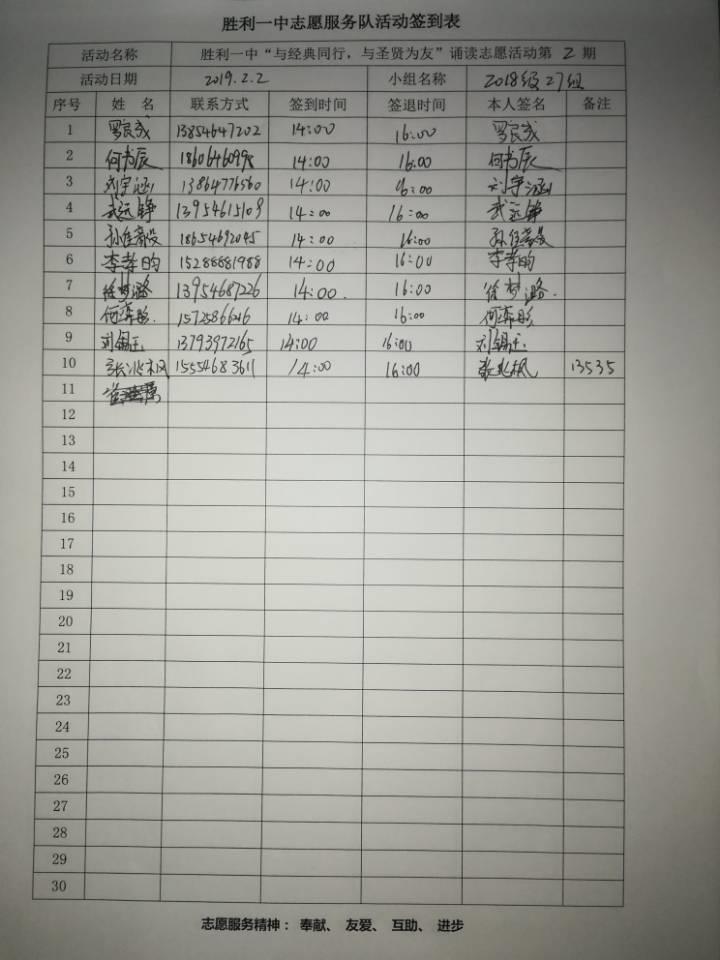 胜利一中志愿服务队活动签到表
活动名称 胜利一中“与经典同行，与圣贤为友”诵读志愿活动第 2 期
活动日期 2019.2.2 小组名称 2018级27组
序号 姓 名 联系方式 签到时间 签退时间 本人签名 备注
1 13854647202 14:00 16:00
2 何书辰 14:00 16:00 何书辰
3 刘宇涵 13864776560 14:00 16:00 刘宇涵
4 武远铮 13954615109 14:00 16:00 武远铮
5 18654692045 14:00 16:00
6 李孝昀 15288881988 14:00 16:00 李孝昀
7 徐梦潞 13954687226 14:00. 16:00 徐梦潞.
8 14:00 16:00
9 刘锡玉 13793972165 14:00 16:00 刘锡玉
10 张兆枫 15554683611 14:00 16:00 张兆枫 13535
11
12
13
14
15
16
17
18
19
20
21
22
23
24
25
26
27
28
29
30
志愿服务精神： 奉献、 友爱、 互助、 进步